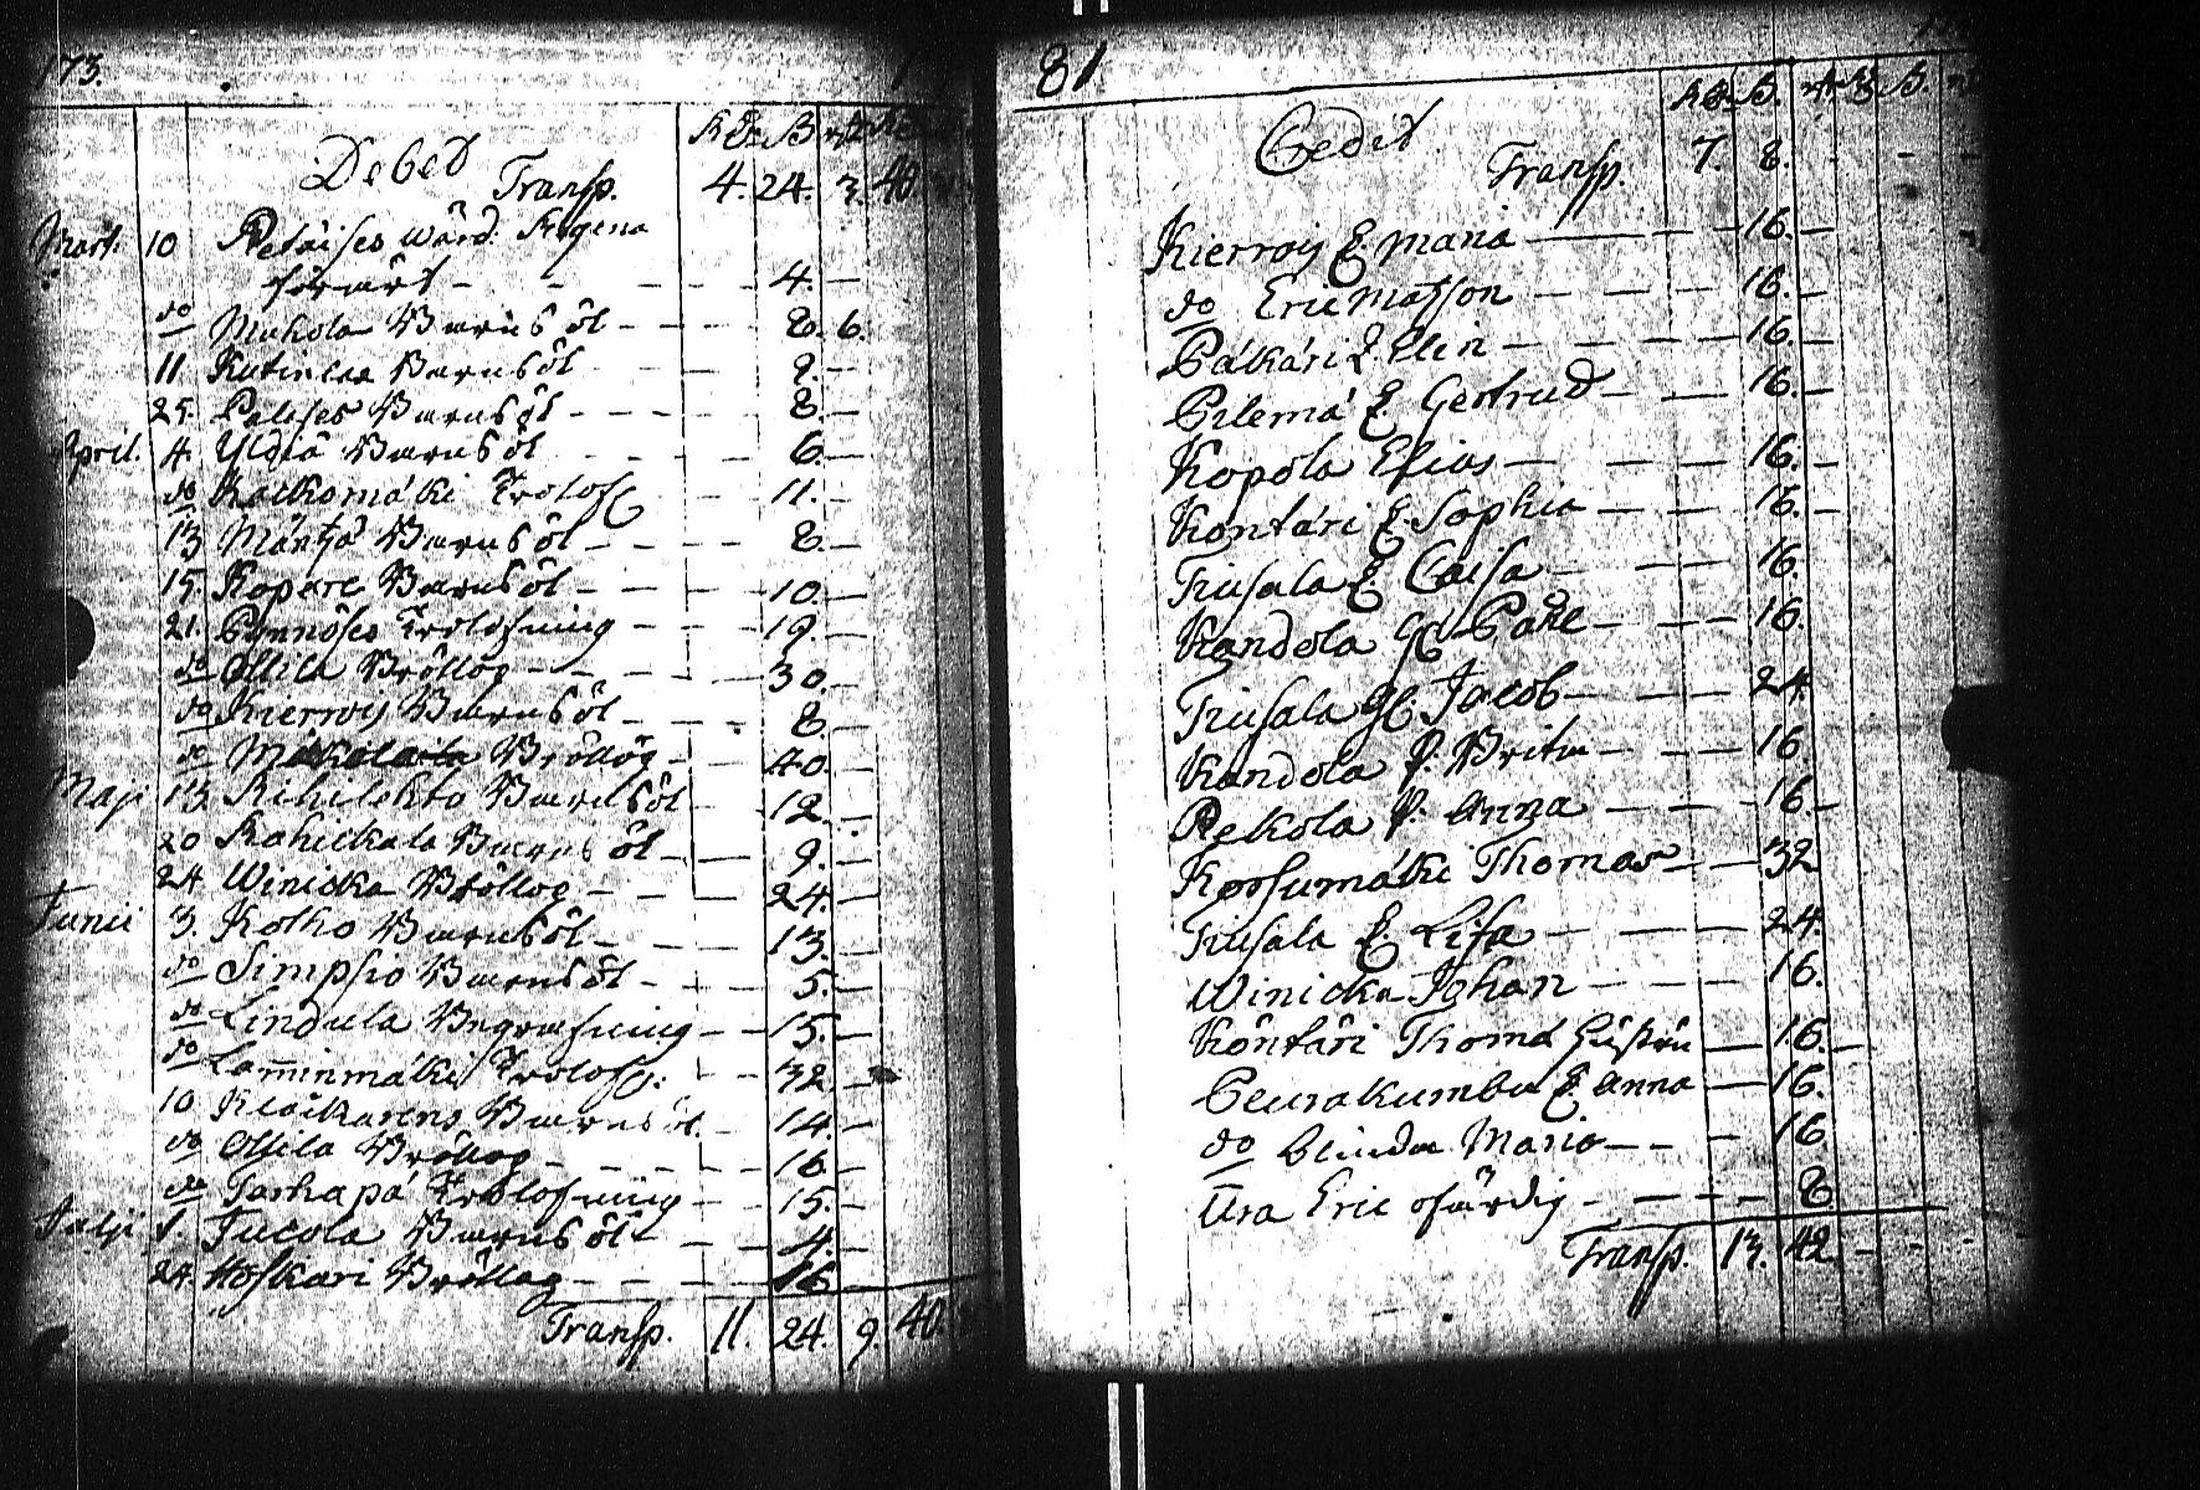 173.
Debed
Rdr ß rst
Transp. 4. 24. 3. 40.
Mart. 10 Petäises wärd. Regena
förärt - - - - 4. -
do Mukola Barns öl - - - - 8. 6.
11 Barns öl - - 9. -
25. Palises Barns öl - - - - 8. -
April. 4. Yldiä Barns öl - - - - 6. -
do Kackomäki Trolofg - - 11. -
13 Mäntjä Barns öl - - - - 8. -
15. Kopare Barns öl - - - - 10. -
21. Pynnöses Trolofning - - - 19. -
do Ollila Bröllop - - - - 30. -
do Kierroij Barns öl - - - 8 -
do Bröllop - - - 40. -
Maji 13. Rihilehto Barns öl - - 12. -
20 Kohickala Barns öl - - 9. -
24 Winicka Bröllop - - - 24. -
Junii 3. Kotho Barns öl - - - 13. -
do Simpsio Barns öl - - - 5. -
do Lindula Begrafning - - 15. -
do Lam̅inmäki Trolofg: - - 32 -
10 Barns öl. - 14. -
do Ollila Bröllop - - - - - 16 -
do Tarhapä Trolofning - - 15. -
Julji 1. Jucola Barns öl - - - 4. -
24. Hoskari Bröllop - - - - 16
Transp. 11. 24. 9. 40.
81.
Cedit
Transp. 7. 8. - - -
Kierroij E. Maria - - - 16. -
do Eric Matsson - - - - 16. -
Pälkäri E. Elin - - - - - 16. -
Pilemä E. Gertrud - - - 16. -
Kopola Elias - - - 16. -
Kontäri E. Sophia - - - 16. -
Triusala E. Caisa - - - 16.
Kandola Gl. Påhl - - - 16.
Triusala Gl. Jacob - - - 24.
Kandola P. Brita - - - 16
Pekola P. Anna - - - 16 -
Korsumäki Thomas - - 32
Triusala E. Lisa - - - 24.
Winicka Johan - - - - 16.
Köntäri Thomas - 16. -
Peurakumbu E. Anna - 16.
do Blinda Maria - - - 16
Ura Eric ofärdig - - - - 8
Transp. 13. 42 - - -